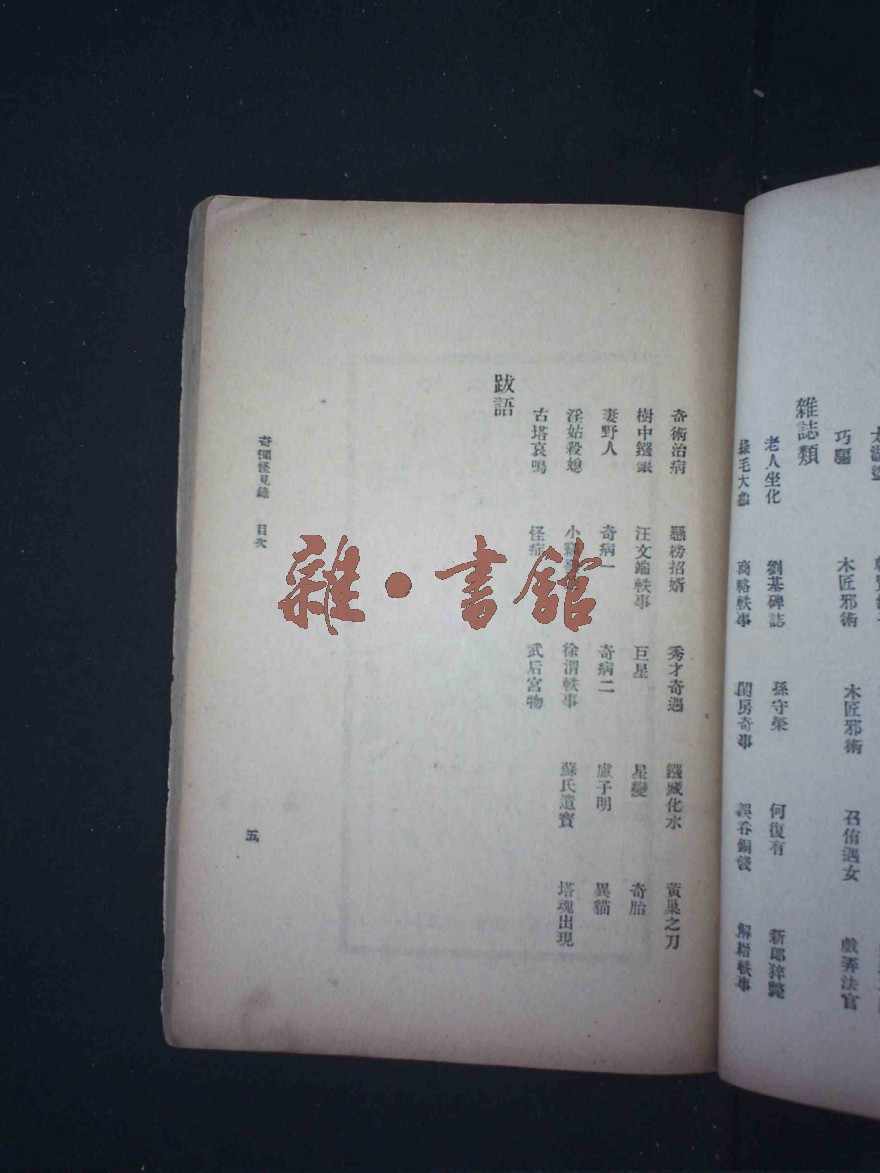 巧騙 木匠邪術 木匠邪術 召侑遇女 戲弄法官
雜誌類
老人坐化 劉基碑誌 孫守榮 何復有 新郎猝斃
綠毛大 商輅軼事 閨房奇事 誤吞銅錢 解縉軼事
奇術治病 懸榜招婿 秀才奇遇 鏹藏化水 黃巢之刀
樹中鏹 汪文端軼事 巨星 星變 奇胎
妻野人 奇病一 奇病二 盧子明 異貓
淫姑殺媳 小 徐渭軼事 蘇氏遺寶 塔魂出現
古塔哀鳴 怪症 武后宮物
跋語
奇聞怪見錄 目次
五
雜·書館